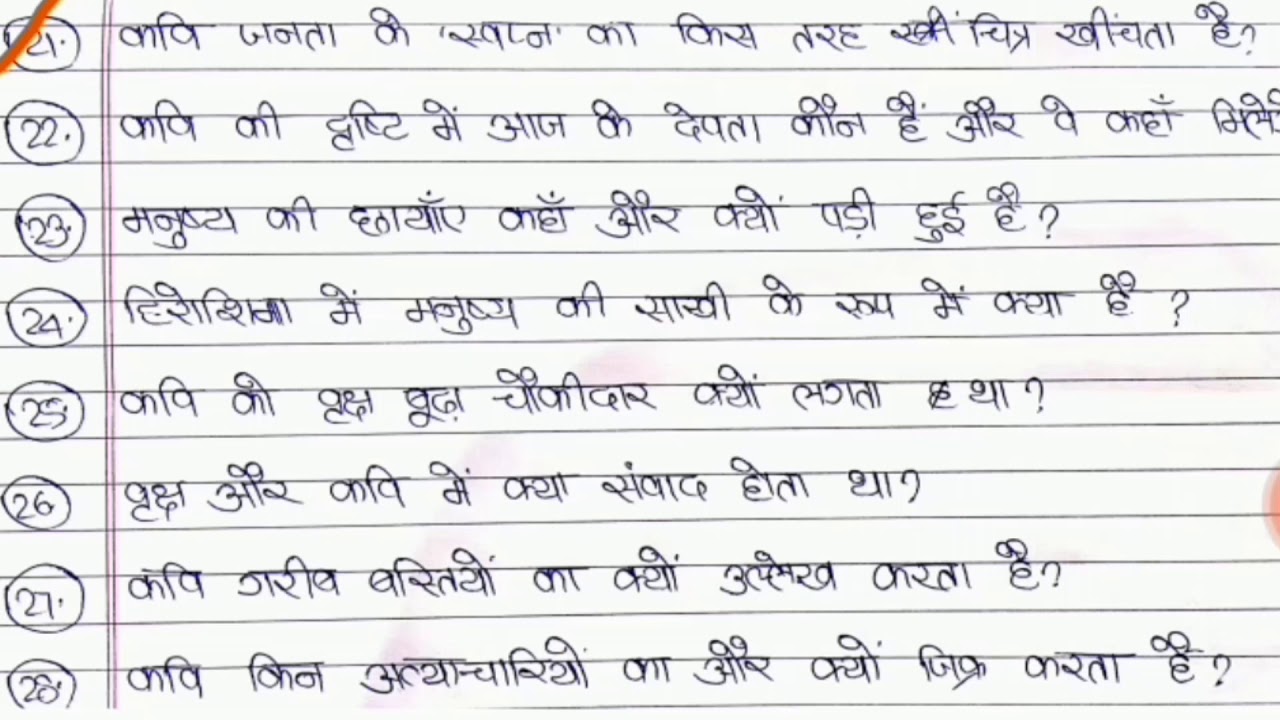 21. कवि जनता के 'स्वप्न' का किस तरह चित्र खींचता है?
22. कवि की दृष्टि में आज के देवता कौन हैं और वे कहाँ
23. मनुष्य की छायाँए कहाँ और क्यों पड़ी हुई है?
24. हिरोशिमा में मनुष्य की साखी के रूप में क्या है ?
25. कवि को वृक्ष बूढ़ा चौकीदार क्यों लगता था?
26. वृक्ष और कवि में क्या संवाद होता था?
27. कवि गरीब बस्तियों का क्यों उल्लेख करता है?
28. कवि किन अत्याचारियों का और क्यों जिक्र करता है?